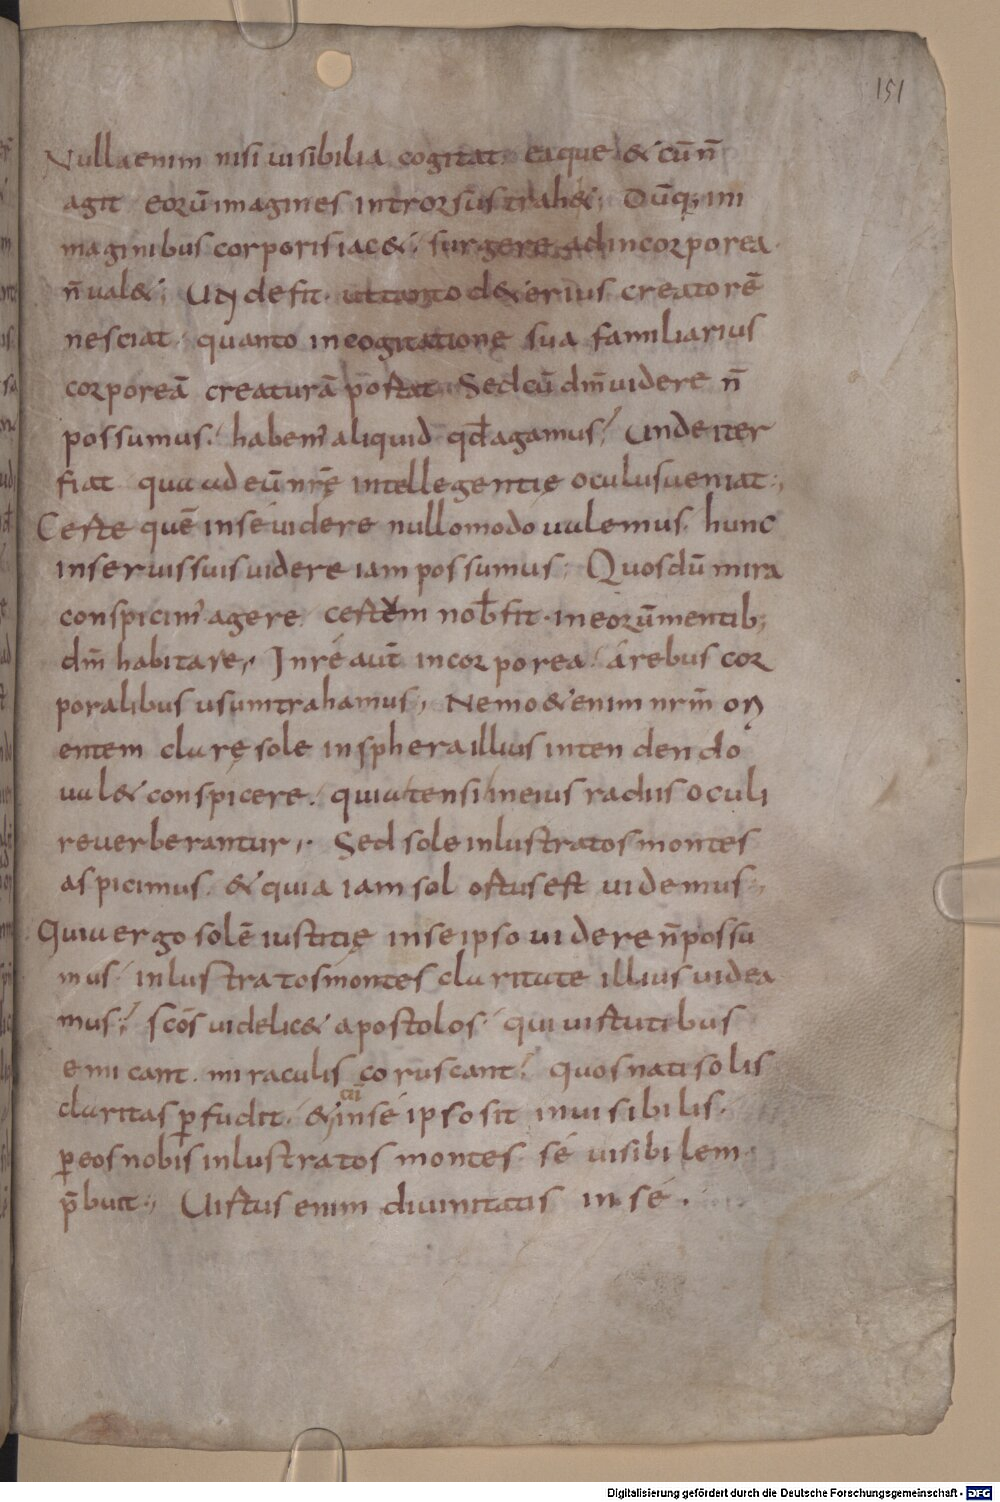 151
Nulla enim nisi uisibilia cogitat. eaque & cū n̄
agit eorū imagines introrsus trah&; Dūq; im
maginibus corporis iac&; surgere ad incorporea
n̄ ual&; Un̄ de fit. ut tanto d&erius creatorē
nesciat. quanto in cogitatione sua familiarius
corporeā creaturā portat. Sed cū dm̄ uidere n̄
possumus. habem' aliquid qđ agamus; unde iter
fiat quo ad eū nrę̄ intellegentię oculus ueniat;
Certe quē in se uidere nullo modo ualemus. hunc
in seruis suis uidere iam possumus; Quos dū mira
conspicim' agere certem nob̄ fit. in eorū mentib;
dm̄ habitare; In ré aut̄ incorporea. á rebus cor
poralibus usum trahamus; Nemo &enim nrm̄ ori
entem clarę sole in sphera illius intendendo
ual& conspicere. quia tensi in eius radiis oculi
reuerberantur; Sed sole inlustratos montes
aspicimus. & quia iam sol ortus est uidemus;
Quia ergo solē iustitię in se ipso uidere n̄ possu
mus. inlustratos montes claritate illius uidea
mus; scōs uidelic& apostolos. qui uirtutibus
emicant. miraculis coruscant; quos nati solis
claritas p̱fudit. & cū in sé ipso sit inuisibilis.
p̱ eos nobis inlustratos montes sé uisibilem
p̄buit; Uirtus enim diuinitatis in sé.
Digitalisierung gefördert durch die Deutsche Forschungsgemeinschaft - DFG